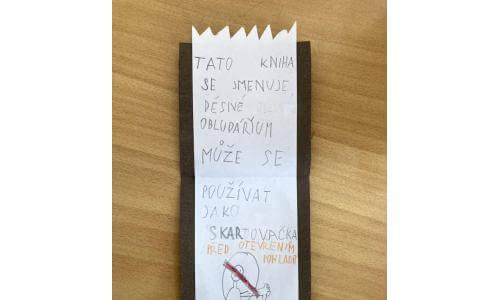 TATO KNIHA
SE JMENUJE
DĚSNÉ
OBLUDÁŘYUM
MŮŽE SE
POUŽÍVAT
JAKO
SKARTOVAČKA
PŘED OTEVŘENÍM
POHLADIT